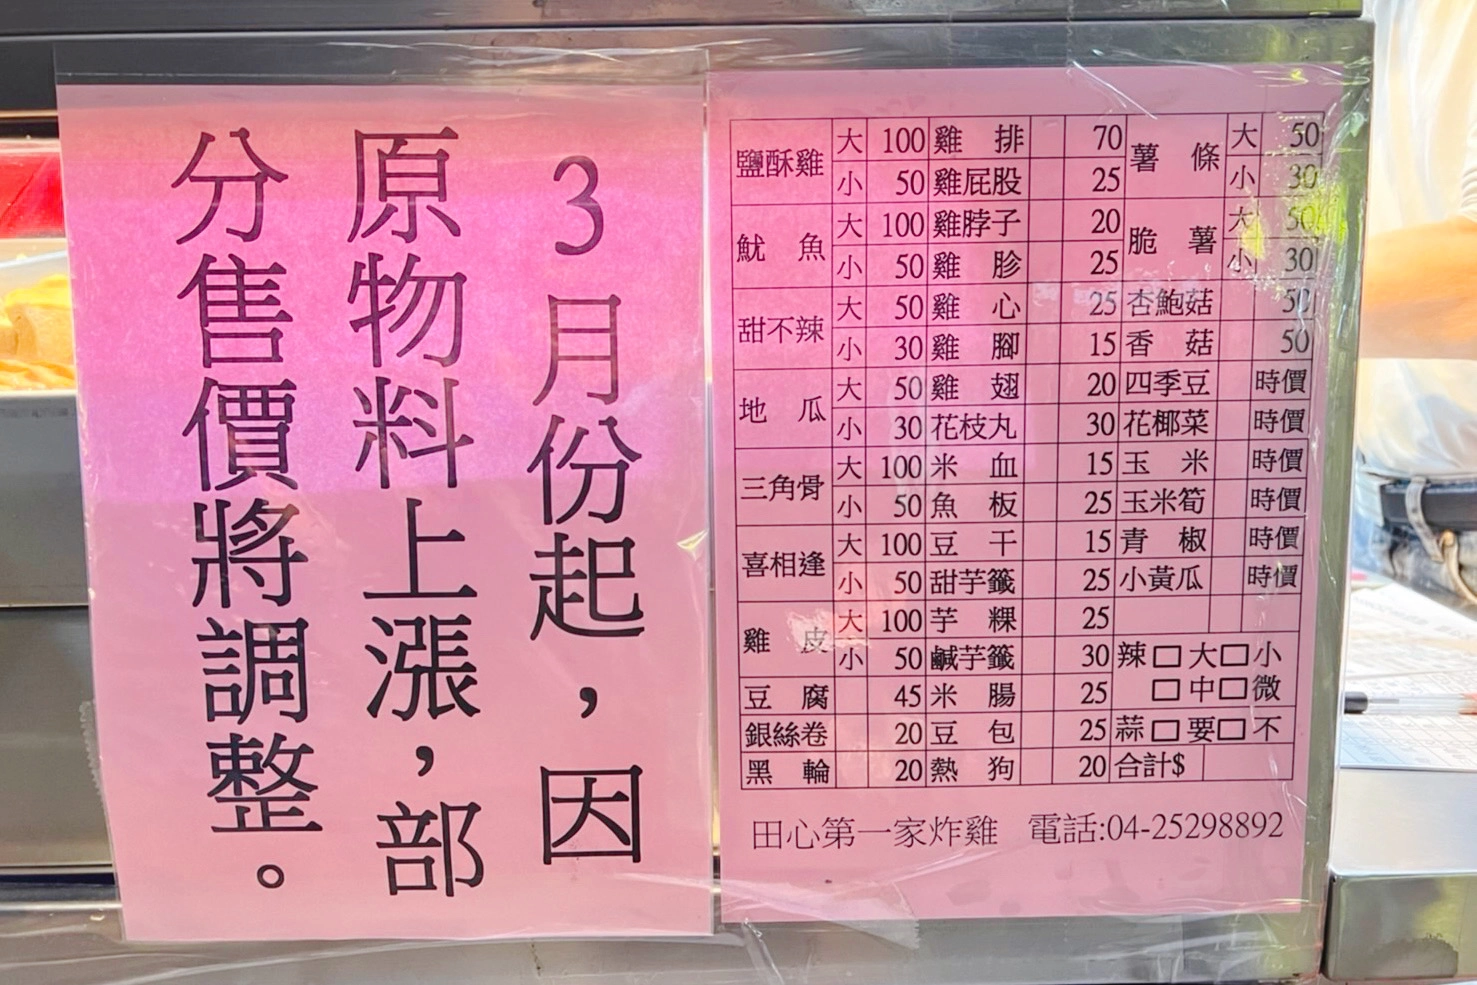 3月份起，因
原物料上漲，部
分售價將調整。
鹽酥雞 大 100 雞排 70 薯條 大 50
小 50 雞屁股 25 小 30
魷魚 大 100 雞脖子 20 脆薯 大 50
小 50 雞胗 25 小 30
甜不辣 大 50 雞心 25 杏鮑菇 50
小 30 雞腳 15 香菇 50
地瓜 大 50 雞翅 20 四季豆 時價
小 30 花枝丸 30 花椰菜 時價
三角骨 大 100 米血 15 玉米 時價
小 50 魚板 25 玉米筍 時價
喜相逢 大 100 豆干 15 青椒 時價
小 50 甜芋籤 25 小黃瓜 時價
雞皮 大 100 芋粿 25
小 50 鹹芋籤 30 辣 □ 大 □ 小
豆腐 45 米腸 25 □ 中 □ 微
銀絲卷 20 豆包 25 蒜 □ 要 □ 不
黑輪 20 熱狗 20 合計$
田心第一家炸雞 電話:04-25298892